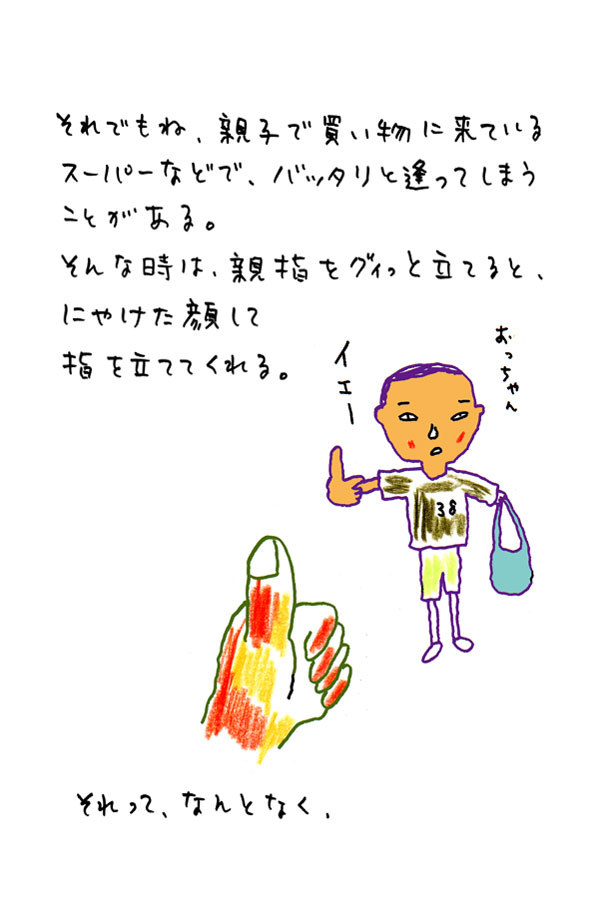 それでもね、親子で買い物に来ている
スーパーなどで、バッタリと逢ってしまう
ことがある。
そんな時は、親指をグィっと立てると、
にやけた顔して
指を立ててくれる。
おっちゃん
イエー
38
それって、なんとなく、